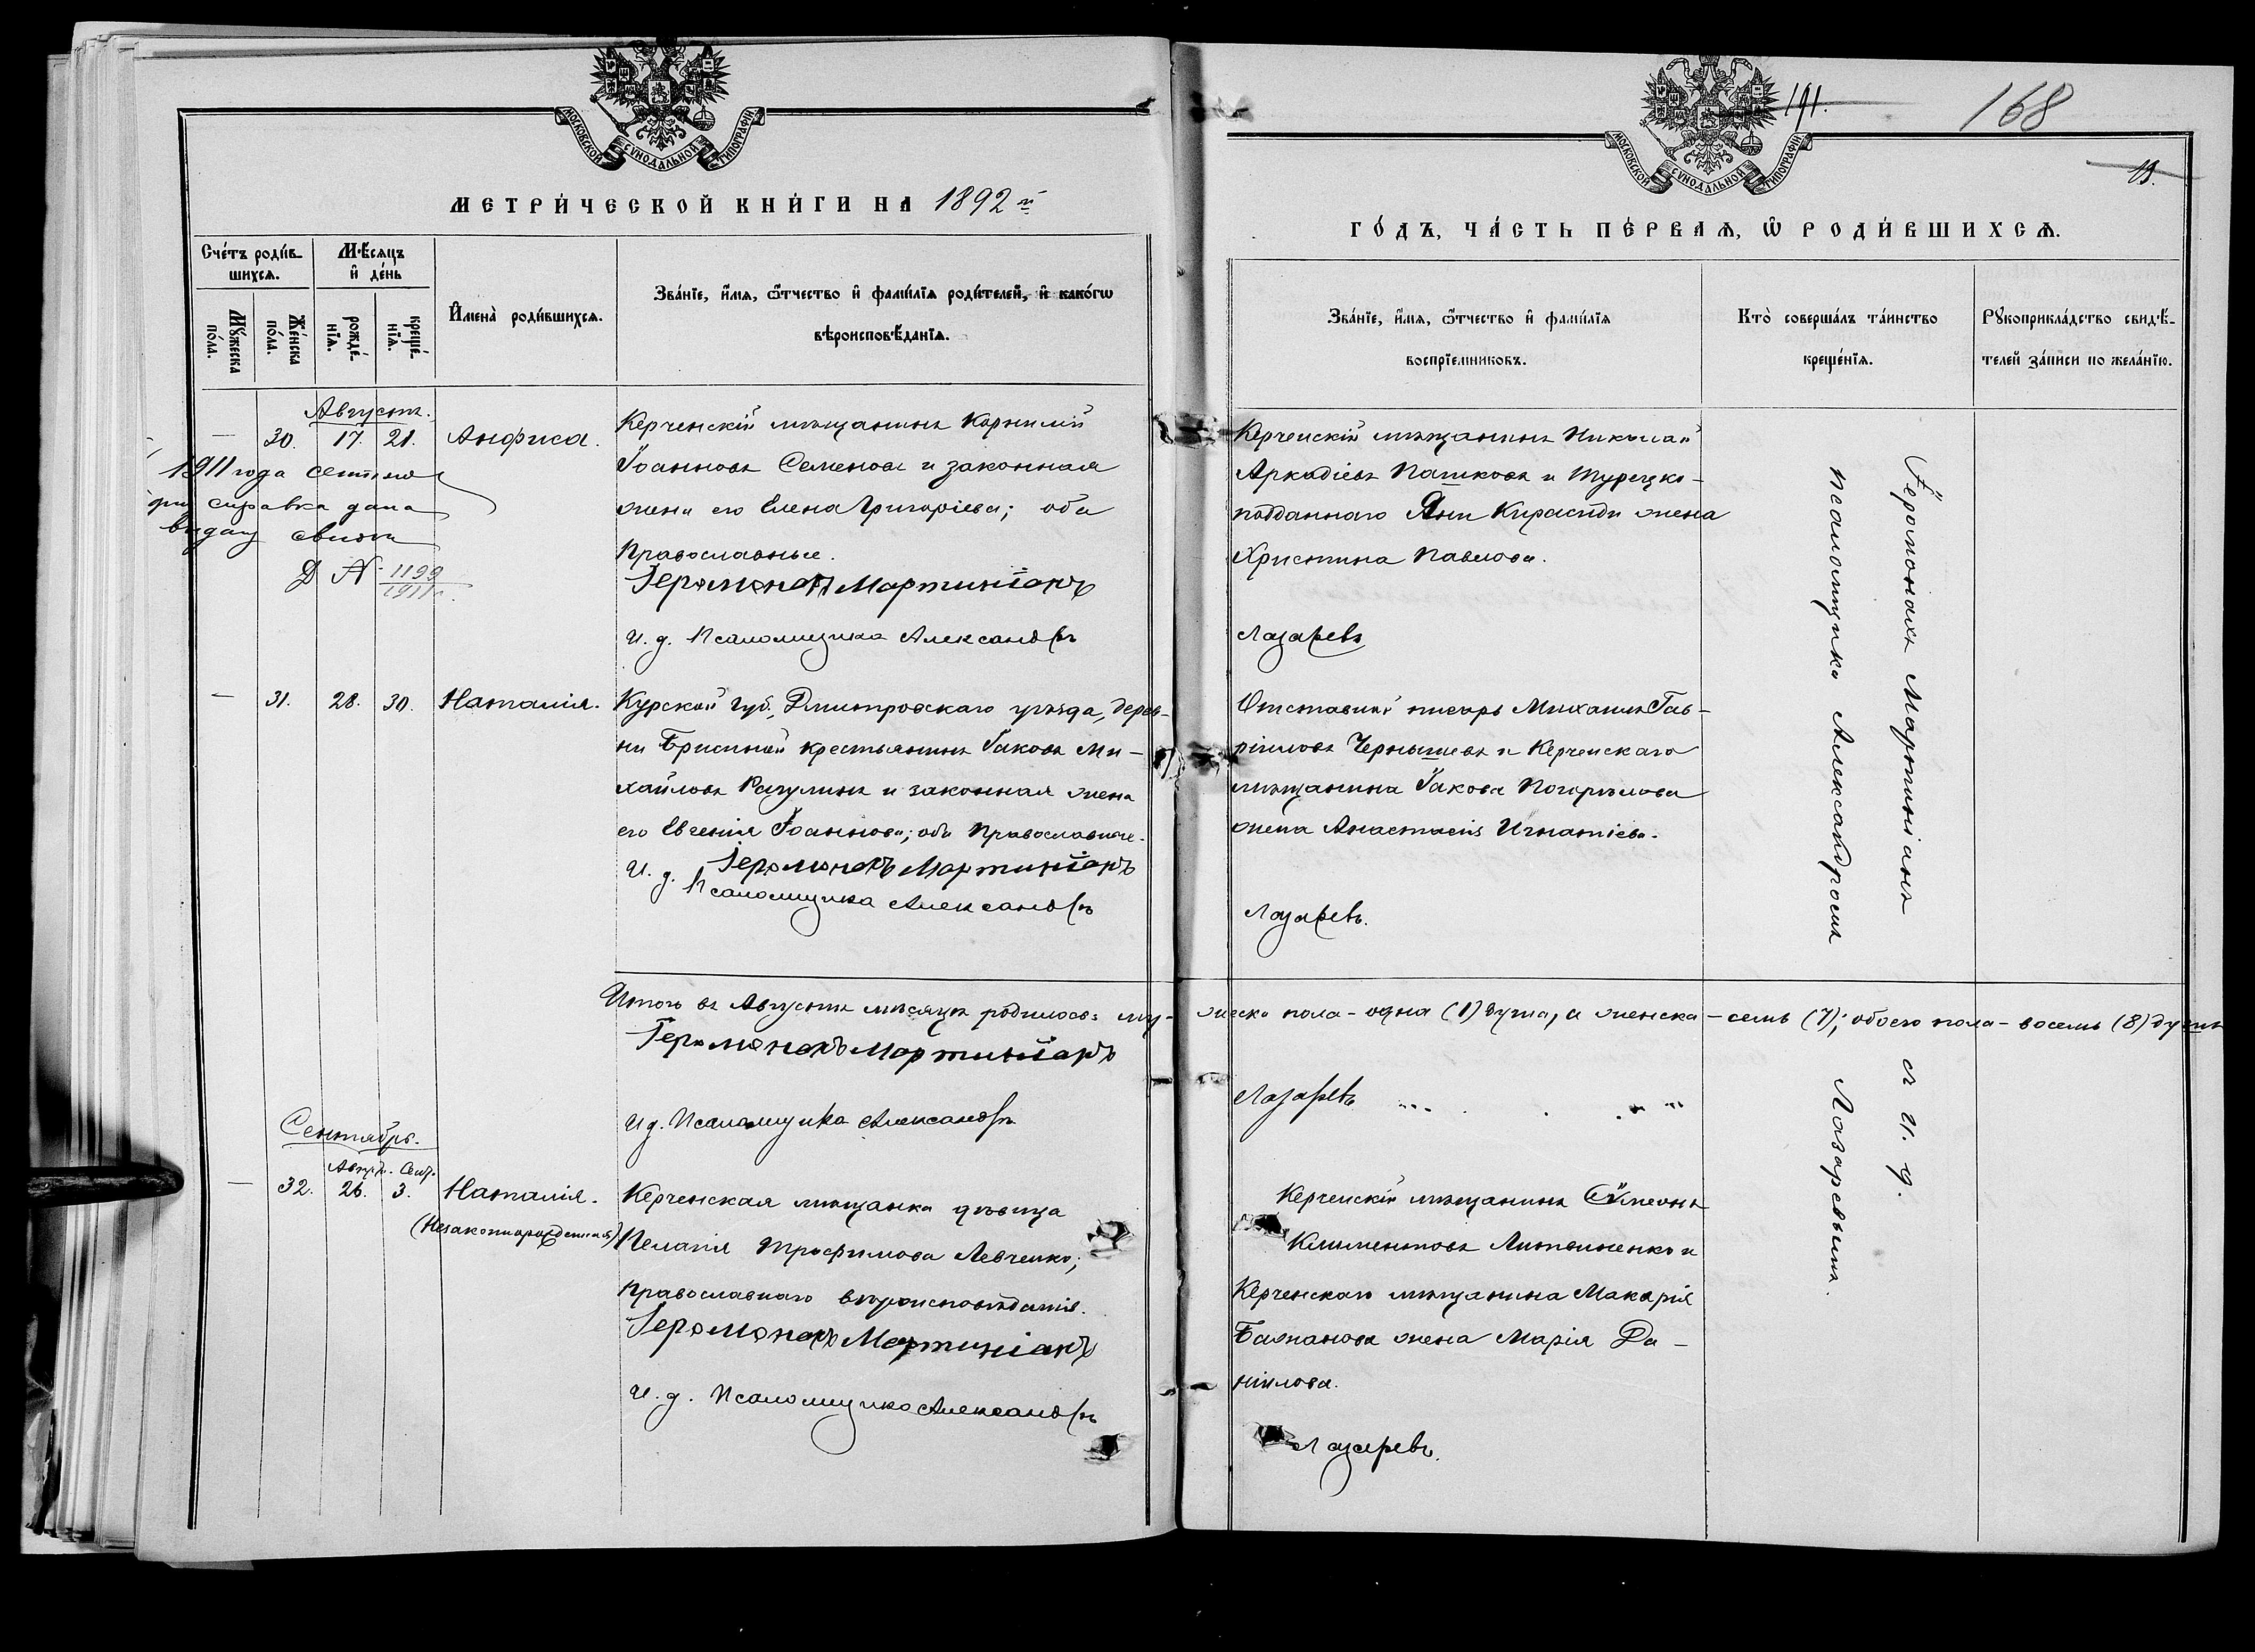 МОСКОВСКОЙ СѴНОДАЛЬНОЙ ТИПОГРАФІИ
МЕТРИЧЕСКОЙ КНИГИ НА 1892 й
Счетъ родив-
шихся.
Мѣсяцъ
и день
Мужеска
пола.
Женска
пола.
рожде-
нія.
креще-
нія.
Имена родившихся.
Званіе, имя, отчество и фамилія родителей, и какогѡ
вѣроисповѣданія.
Августъ.
— 30. 17. 21. Анфиса.
Керченскій мѣщанинъ Корнилій
Іоанновъ Семеновъ и законная
жена его Елена Григоріева; оба
Православные.
Іеромонахъ Мартиніанъ
И. д. Псаломщика Александръ
1911 года
справка дана
№ 1199
1911 г.
— 31. 28. 30. Наталія.
Курской губ., Дмитровскаго уѣзда, дерев-
ни крестьянинъ Іаковъ Ми-
хайловъ и законная жена
его Евгенія Іоаннова; оба Православные.
Іеромонахъ Мартиніанъ
И. д. Псаломщика Александръ
Итого въ Августѣ мѣсяцѣ родилось: му-
Іеромонахъ Мартиніанъ
И д. Псаломщика Александръ
Сентябрь.
Авгус. Сент.
— 32. 26. 3. Наталія.
(Незаконнорожденная)
Керченская мѣщанка дѣвица
Пелагія Трофимова Левченко;
Православнаго вѣроисповѣданія.
Іеромонахъ Мартиніанъ
И. д. Псаломщика Александръ
191.
168
МОСКОВСКОЙ СѴНОДАЛЬНОЙ ТИПОГРАФІИ
ГОДЪ, ЧАСТЬ ПЕРВАЯ, Ѡ РОДИВШИХСЯ.
Званіе, имя, отчество и фамилія
воспріемниковъ.
Кто совершалъ таинство
крещенія.
Рукоприкладство свидѣ-
телей записи по желанію.
Керченскій мѣщанинъ Николай
Аркадіевъ Пашковъ и Турецко-
подданнаго Яни Кирасиди жена
Христина Павлова.
Лазаревъ
Отставной писарь Михаилъ Гав-
ріиловъ Чернышевъ и Керченскаго
мѣщанина Іакова Погорѣлова
жена Анастасія Игнатіева.
Лазаревъ.
жеска пола – одна (1) душа, а женска – семь (7); обоего пола – восемь (8) душъ
Лазаревъ
Керченскій мѣщанинъ Сѵмеонъ
Климентовъ Литвиненко и
Керченскаго мѣщанина Макарія
Бажанова жена Марія Да-
ніилова.
Лазаревъ.
Іеромонахъ Мартиніанъ съ и. д.
псаломщика Александромъ Лазаревымъ.